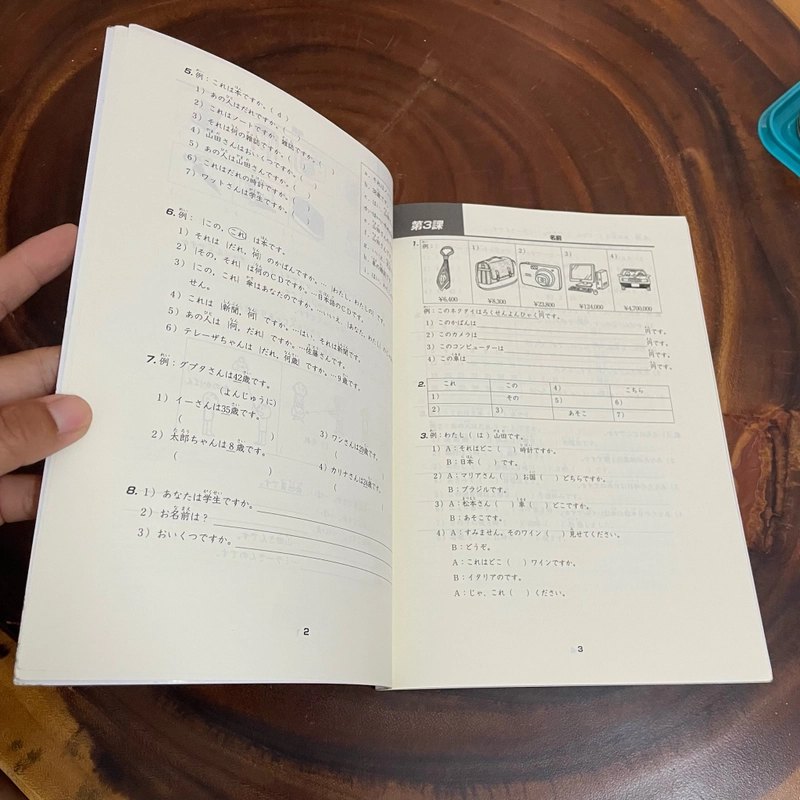 5. 例：これは本ですか。( d )
1) あの人はだれですか。(
2) これはノートですか、雑誌ですか。(　)
3) それは何の雑誌ですか。(　)
4) 山田さんはおいくつですか。(　)
5) あの人は山田さんですか。(　)
6) これはだれの時計ですか。(　)
7) ワットさんは学生ですか。(　)
6. 例：{この, これ} は本です。
1) それは {だれ, 何} のかばんですか。…わたし
2) {その, それ} は何のCDですか。…日本語のCDです。
3) {この, これ} 傘はあなたのですか。…いいえ、{あなた, わたし}
せん。
4) これは {新聞, 何} ですか。…はい、それは新聞です。
5) あの人は {何, だれ} ですか。…佐藤さんです。
6) テレーザちゃんは {だれ, 何歳} ですか。…9歳です。
7. 例：グプタさんは42歳です。
(よんじゅうに)
1) イーさんは35歳です。
(　)
2) 太郎ちゃんは8歳です。
(　)
3) ワンさんは29歳です。
(
4) カリナさんは24歳です。
(
8. 1) あなたは学生ですか。
2) お名前は？
3) おいくつですか。
2
第3課
名前
1. 例：
1)
2)
3)
4)
¥6,400
¥8,300
¥23,800
¥124,000
¥4,700,000
例：このネクタイはろくせんよんひゃく円です。
1) このかばんは　円です。
2) このカメラは　円です。
3) このコンピューターは　円です。
4) この車は　円です。
2.
これ　この　4)　こちら
1)　その　5)　6)
2)　3)　あそこ　7)
3. 例：わたし ( は ) 山田です。
1) A：それはどこ (　) 時計ですか。
B：日本 (　) です。
2) A：マリアさん (　) お国 (　) どちらですか。
B：ブラジルです。
3) A：松本さん (　) 車 (　) どこですか。
B：あそこです。
4) A：すみません。そのワイン (　) 見せてください。
B：どうぞ。
A：これはどこ (　) ワインですか。
B：イタリアのです。
A：じゃ、これ (　) ください。
3